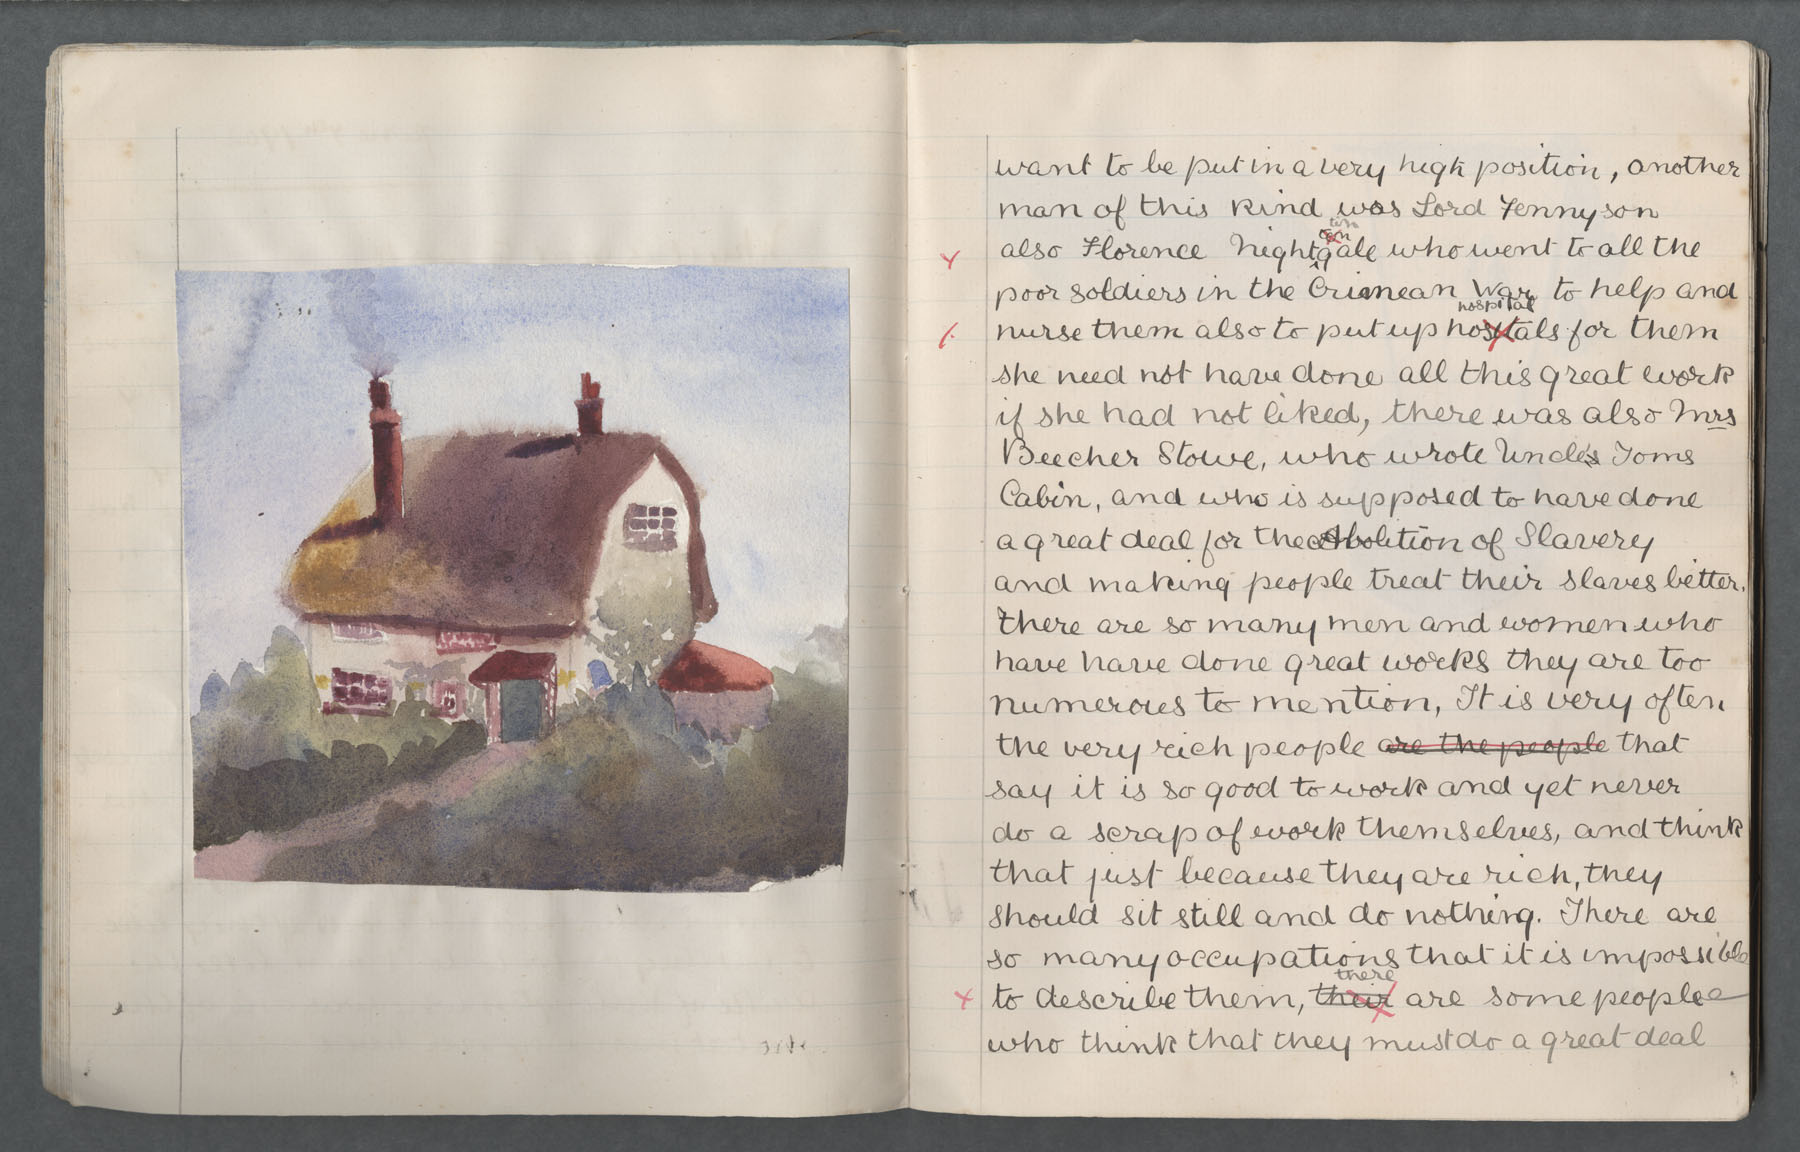 want to be put in a very high position, another
man of this kind was Lord Tennyson
also Florence Nightgale who went to all the
poor soldiers in the Crimean War to help and
hospital
nurse them also to put up hositals for them
she need not have done all this great work
if she had not liked, there was also Mrs
Beecher Stowe, who wrote Uncle's Toms
Cabin, and who is supposed to have done
a great deal for the Abolition of Slavery
and making people treat their slaves better.
There are so many men and women who
have have done great works they are too
numerous to mention, It is very often
the very rich people are the people that
say it is so good to work and yet never
do a scrap of work themselves, and think
that just because they are rich, they
should sit still and do nothing. There are
so many occupations that it is impossible
there
to describe them, their are some people
who think that they must do a great deal